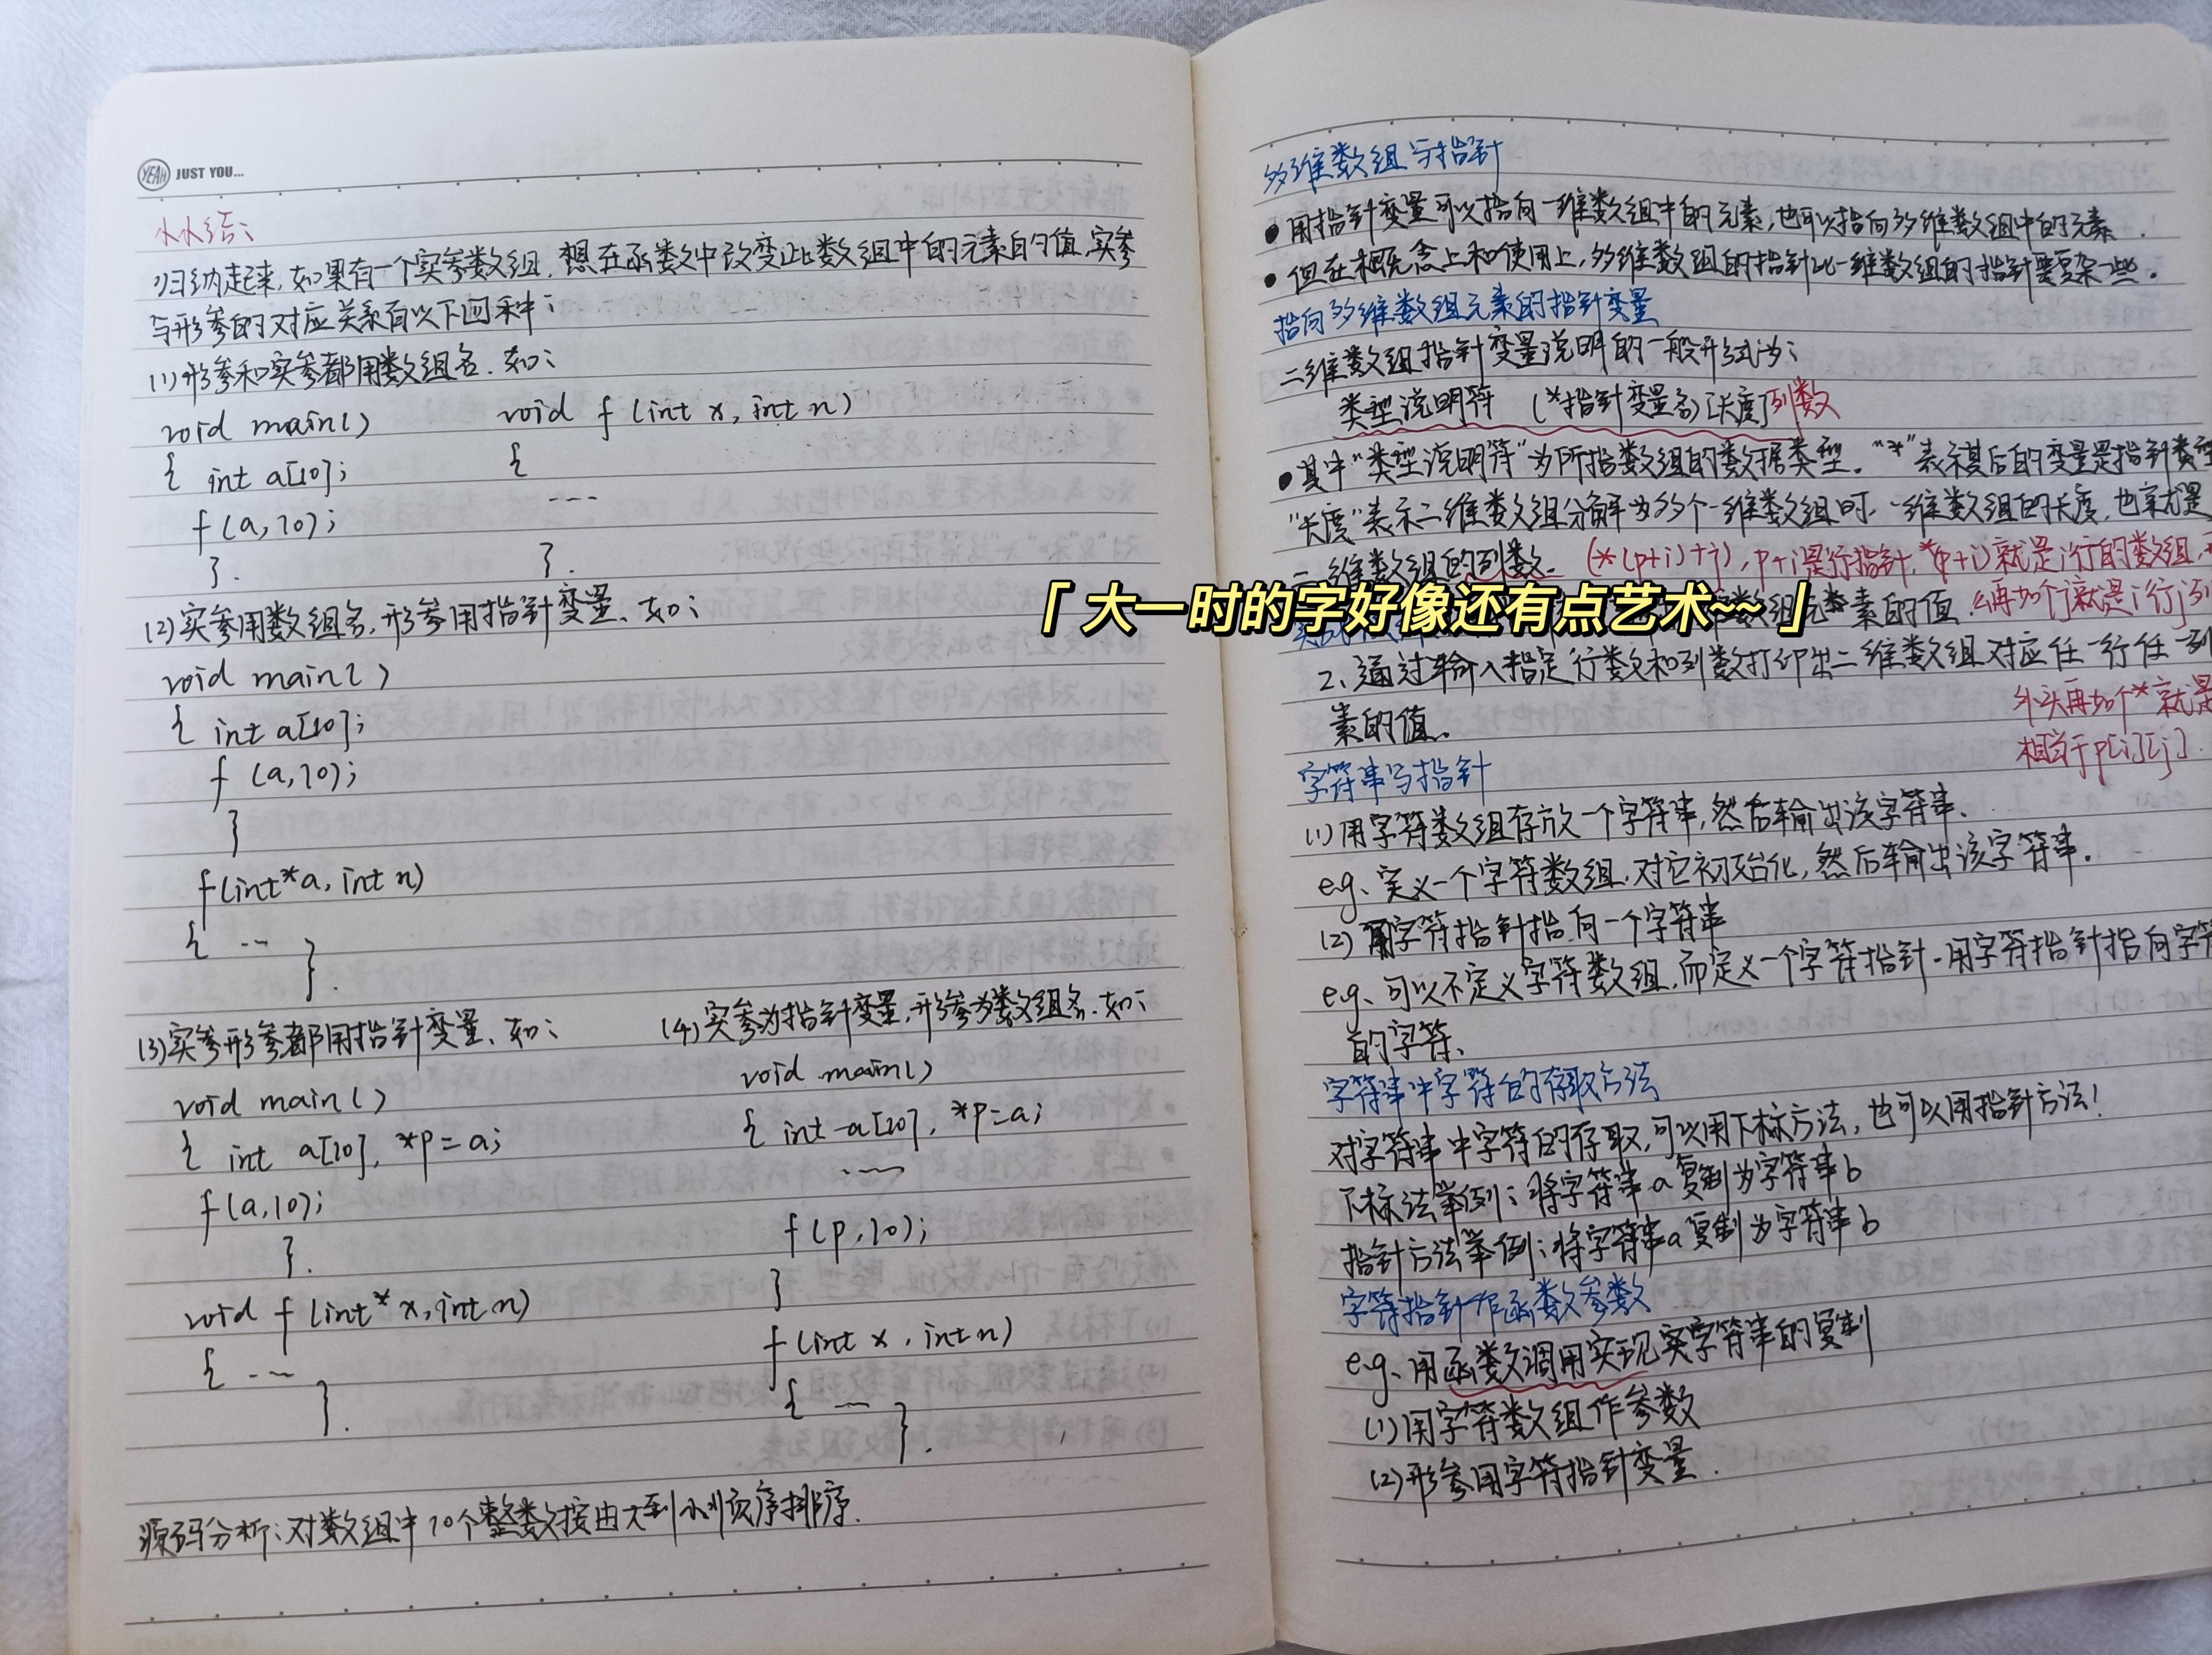 YEAH JUST YOU...
小小结:
归纳起来,如果有一个实参数组,想在函数中改变此数组中的元素的值,实参
与形参的对应关系有以下四种:
(1)形参和实参都用数组名.如:
void main()
void f (int x, int n)
{ int a[10];
{
f (a,10);
----
}.
}.
(2)实参用数组名,形参用指针变量、如:
void main()
{ int a[10];
f (a,10);
}
f(int*a, int n)
{ ---
}.
(3)实参形参都用指针变量、如:
void main()
{ int a[10], *p=a;
f(a,10);
}.
void f (int* x, int n)
{ ---
}.
(4)实参为指针变量,形参为数组名.如:
void main()
{ int a[10], *p=a;
----
f(p,10);
}
f(int x, int n)
{ ---
}.
源码分析:对数组中10个整数按由大到小顺序排序.
多维数组与指针
●用指针变量可以指向一维数组中的元素,也可以指向多维数组中的元素.
●但在概念上和使用上,多维数组的指针比一维数组的指针要复杂一些.
指向多维数组元素的指针变量
二维数组指针变量说明的一般形式为:
类型说明符 (*指针变量名)[长度]列数
●其中"类型说明符"为所指数组的数据类型。"*"表示其后的变量是指针类型
"长度"表示二维数组分解为多个一维数组时,一维数组的长度,也就是
二维数组的列数. (*(p+i)+j),p+i是行指针,*(p+i)就是i行的数组,
「 大一时的字好像还有点艺术~~ 」
素的值. 再加个j就是i行j列
2、通过输入指定行数和列数打印出二维数组对应任一行任一列
素的值。
外头再加个*就是
相当于p[i][j].
字符串与指针
(1)用字符数组存放一个字符串,然后输出该字符串.
e.g、定义一个字符数组,对它初始化,然后输出该字符串.
(2)用字符指针指向一个字符串
e.g、可以不定义字符数组,而定义一个字符指针.用字符指针指向字符
的字符、
字符串中字符的存取方法
对字符串中字符的存取,可以用下标方法,也可以用指针方法!
下标法举例:将字符串a复制为字符串b
指针方法举例:将字符串a复制为字符串b
字符指针作函数参数
e.g、用函数调用实现实字符串的复制
(1)用字符数组作参数
(2)形参用字符指针变量.